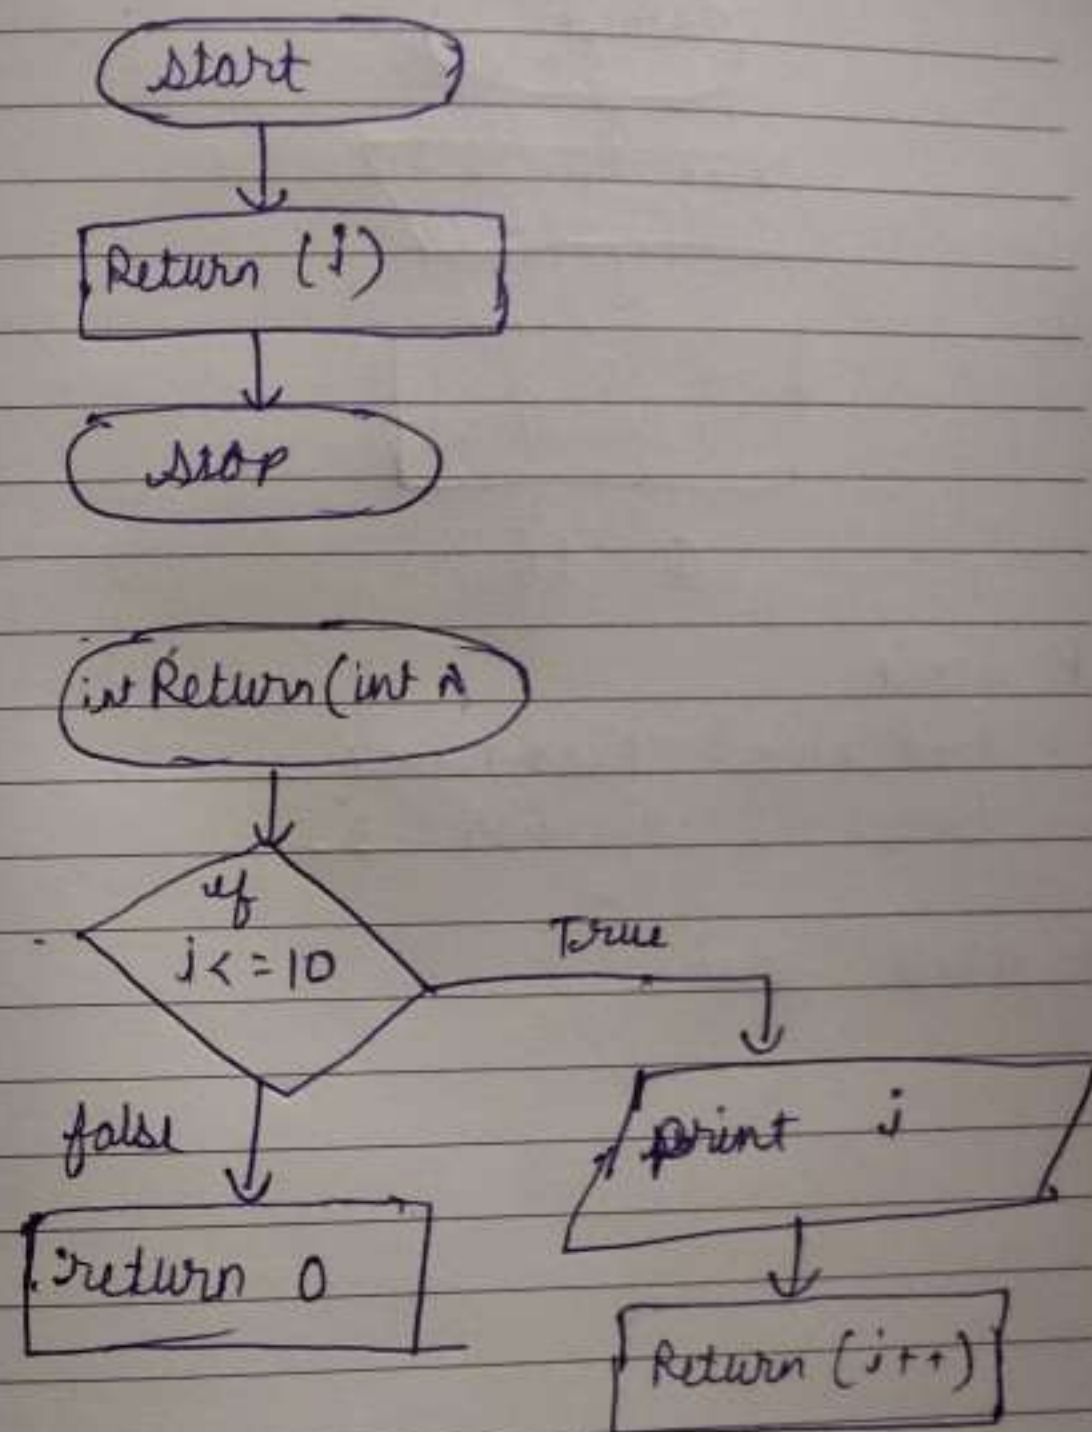 start
Return (i)
stop
int Return (int
if
i <= 10
True
false
print i
return 0
Return (i++)